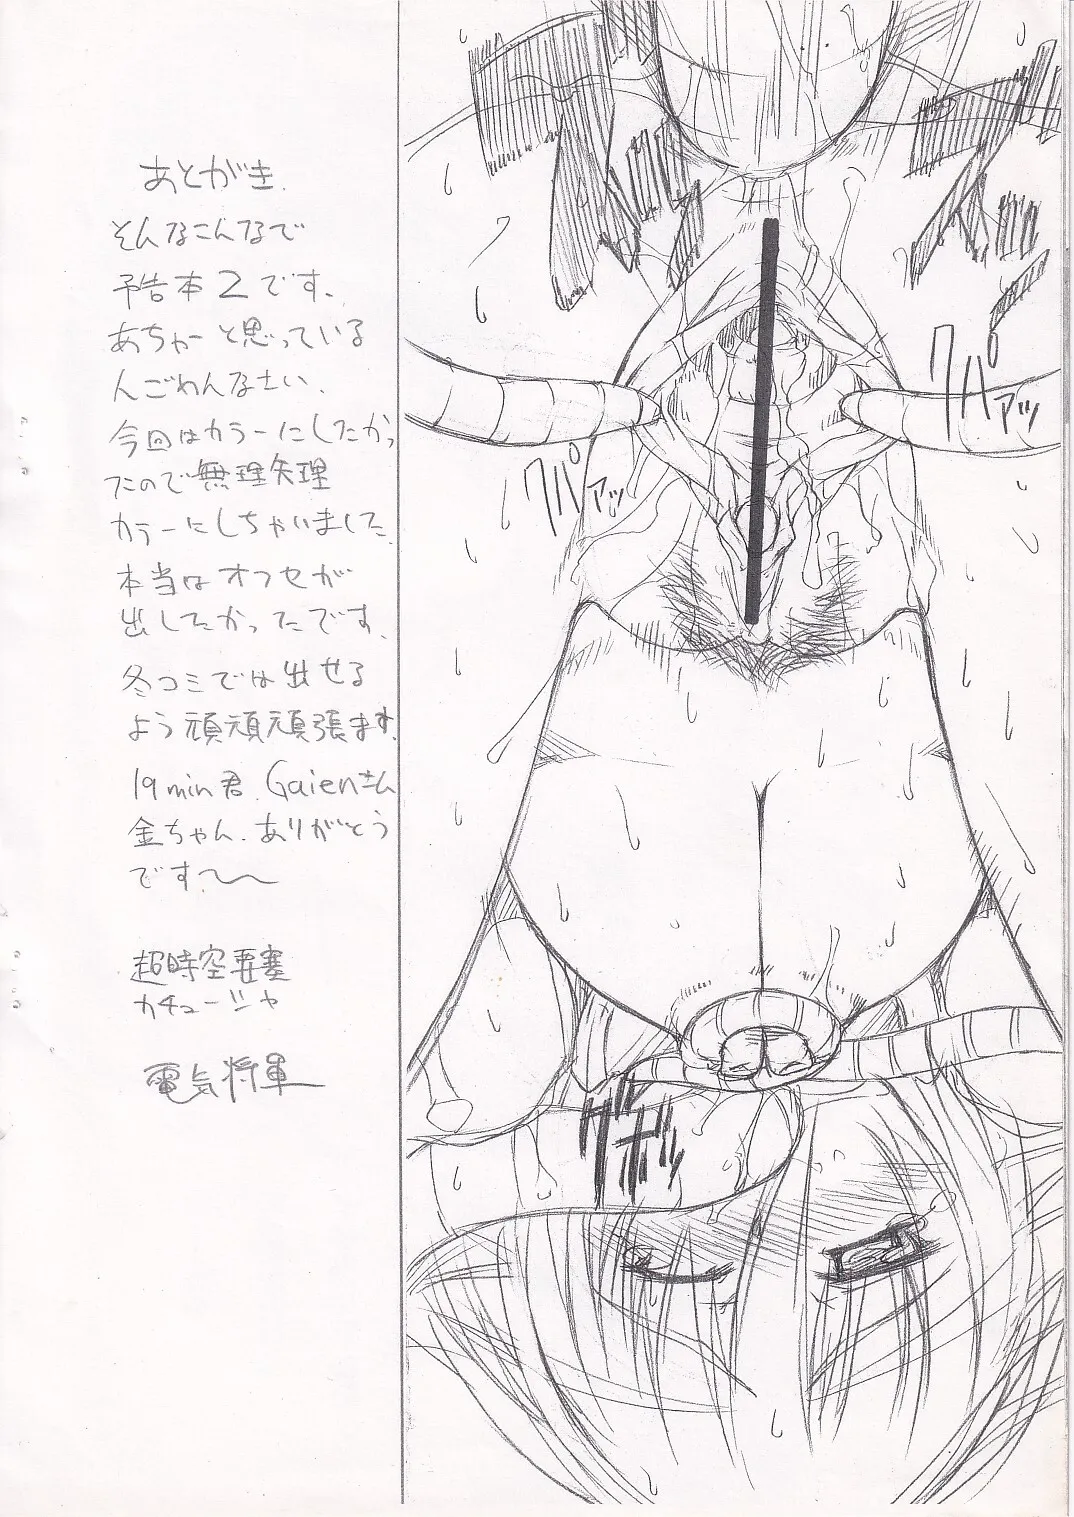 あとがき.
そんなこんなで
予告本2です、
あちゃーと思っている
人ごめんなさい、
今回はカラーにしたかっ
たので無理矢理
カラーにしちゃいました.
本当はオフセが
出したかったです、
冬コミでは出せる
よう頑頑頑張ます.
19min君、Gaienさん
金ちゃん、ありがとう
です〜〜
超時空要塞
カチューシャ
電気将軍
クパァッ
クパァッ